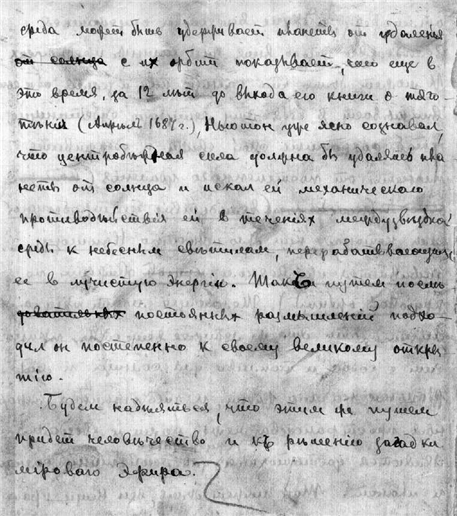 среда может быть удерживает планеты от удаления
от солнца с их орбит показывает, что еще в
это время, за 12 лѣт до выхода его книги о тяго-
тѣнiи (Апрѣль 1687 г.) Ньютон уже ясно сознавал,
что центробѣжная сила должна бы удалять пла
неты от солнца и искал ей механического
противодѣйствiя ей в теченiях междузвѣздной
среды к небесным свѣтилам, перерабатывающим
ее в лучистую энергiю. Такъ путем послѣ
довательных постоянных размышленiй подхо-
дил он постепенно к своему великому откры
тiю.
Будем надѣяться, что этим же путем
придет человѣчество и къ рѣшению загадки
мiроваго эфира.